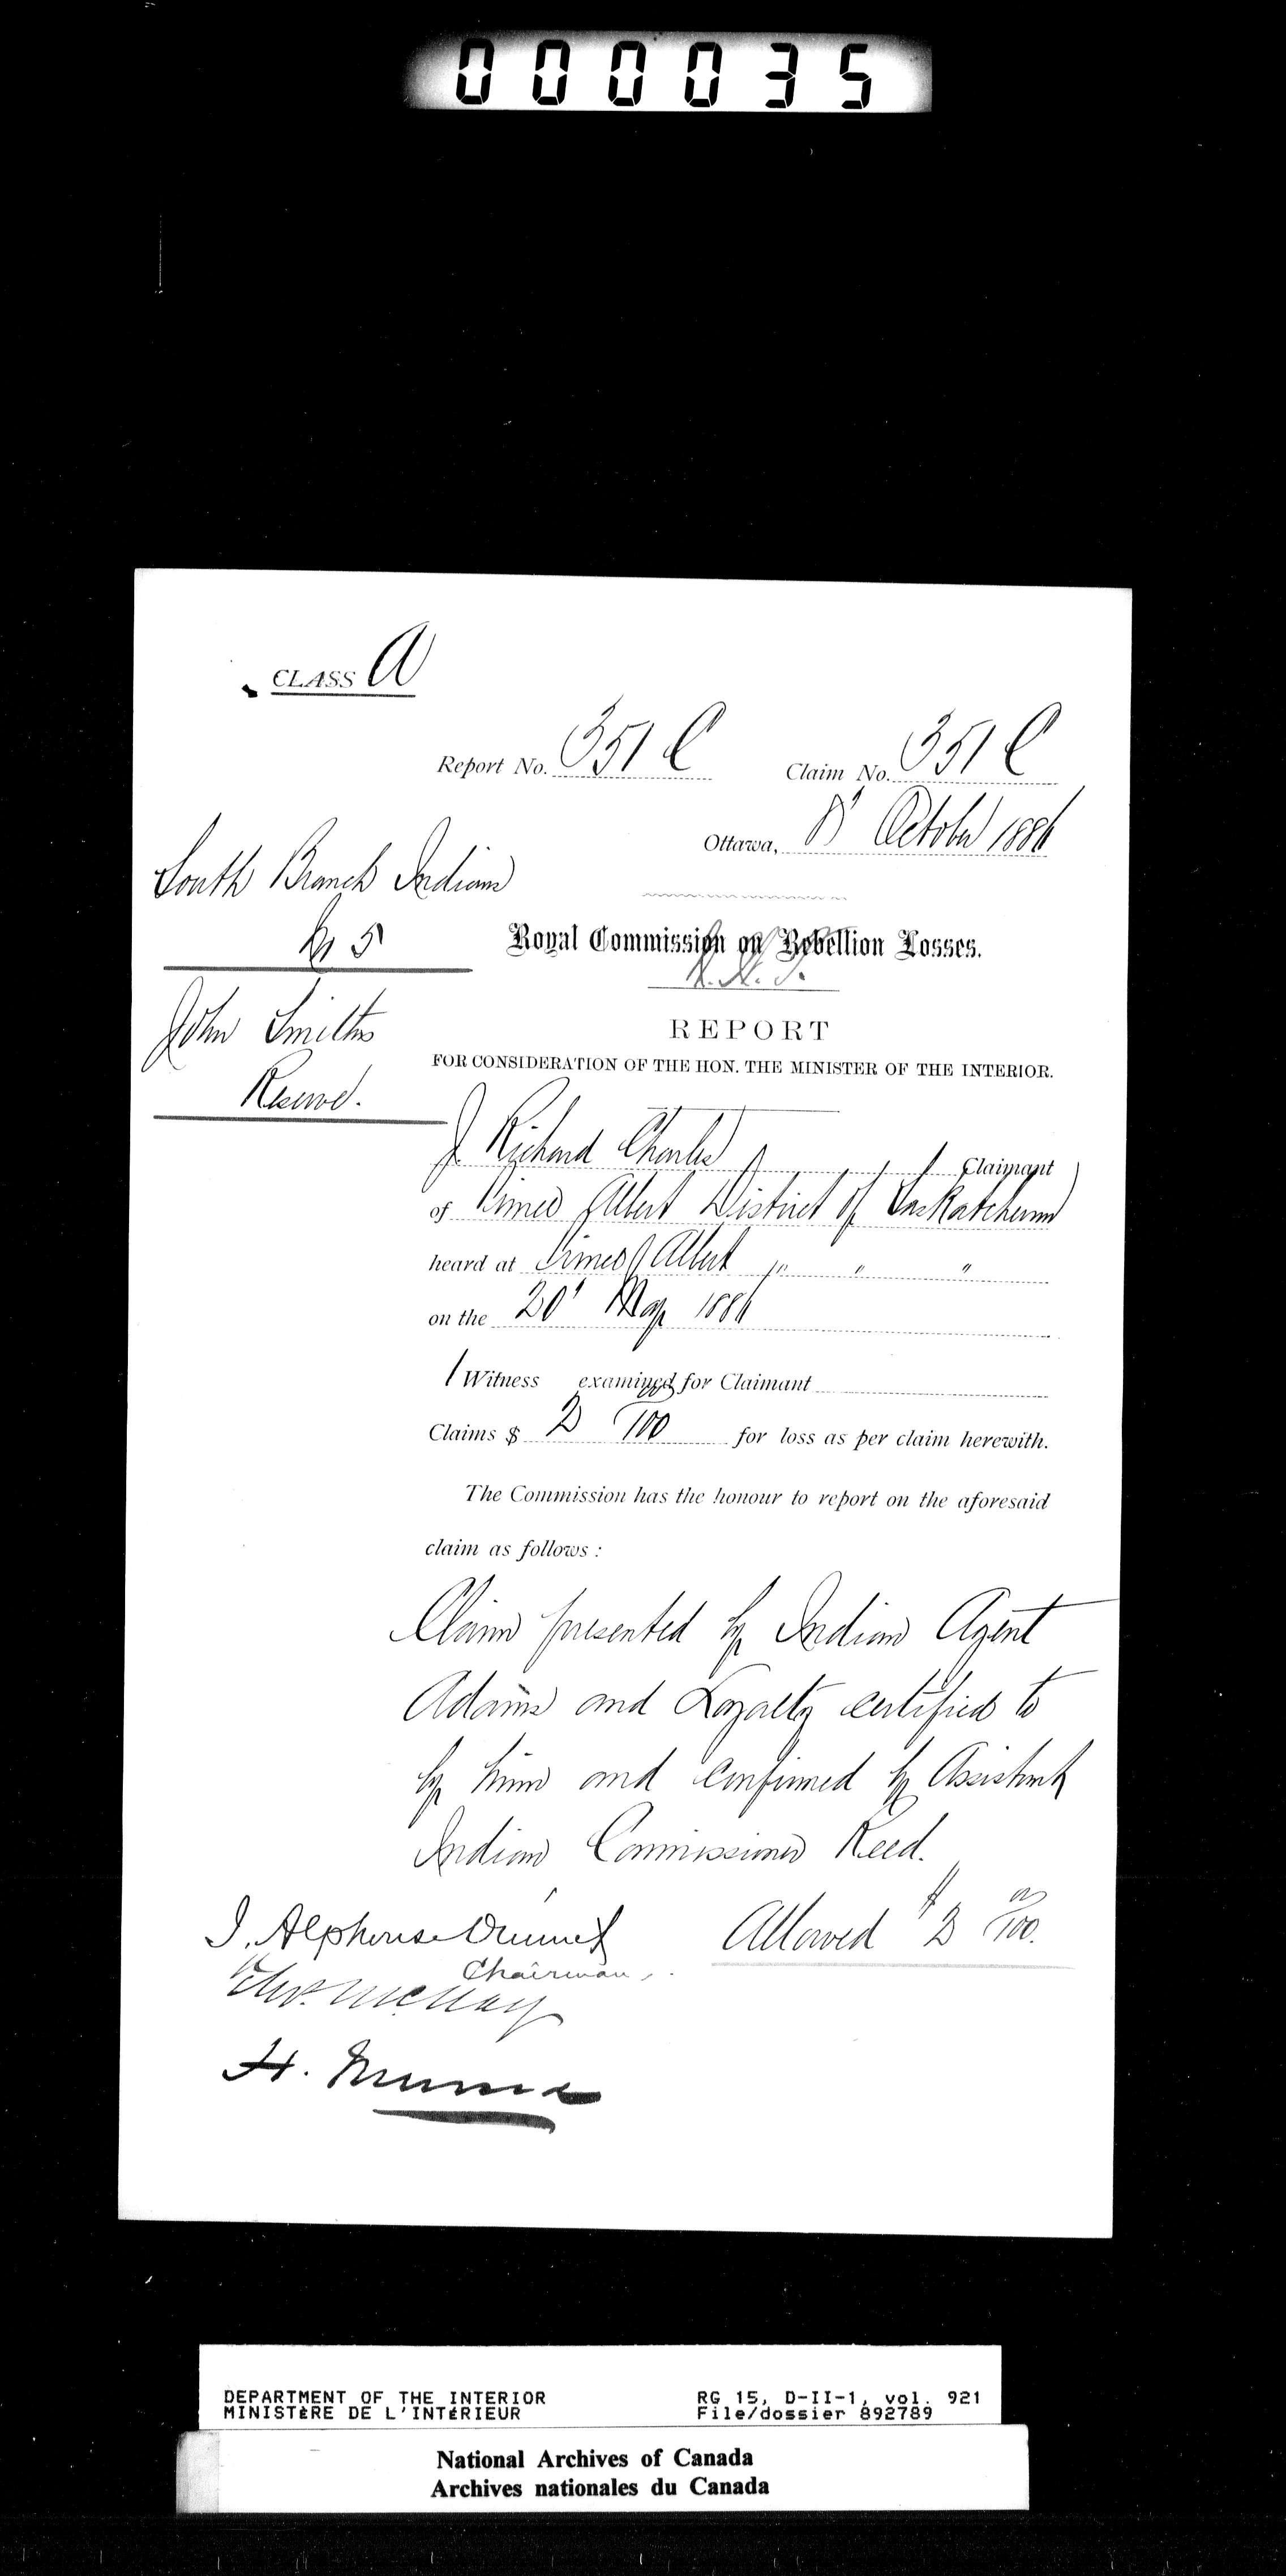 000035
CLASS A
Report No. 351 C Claim No. 351 C
Ottawa, 8' October 1886
South Branch Indians
No 5
Royal Commission on Rebellion Losses.
John Smiths
Reserve.
REPORT
FOR CONSIDERATION OF THE HON. THE MINISTER OF THE INTERIOR.
J. Richard Charles Claimant
of Prince Albert District of Saskatchewan
heard at Prince Albert " " "
on the 20' May 1886
1 Witness examined for Claimant
Claims $ 2 00/100 for loss as per claim herewith.
The Commission has the honour to report on the aforesaid
claim as follows:
Claim presented by Indian Agent
Adams and Loyalty certified to
by him and confirmed by Assistant
Indian Commissioner Reed.
Allowed $2 00/100.
J. Alphonse Ouimet
Chairman
McKay
H. Muma
DEPARTMENT OF THE INTERIOR RG 15, D-II-1, vol. 921
MINISTÈRE DE L'INTÉRIEUR File/dossier 892789
National Archives of Canada
Archives nationales du Canada